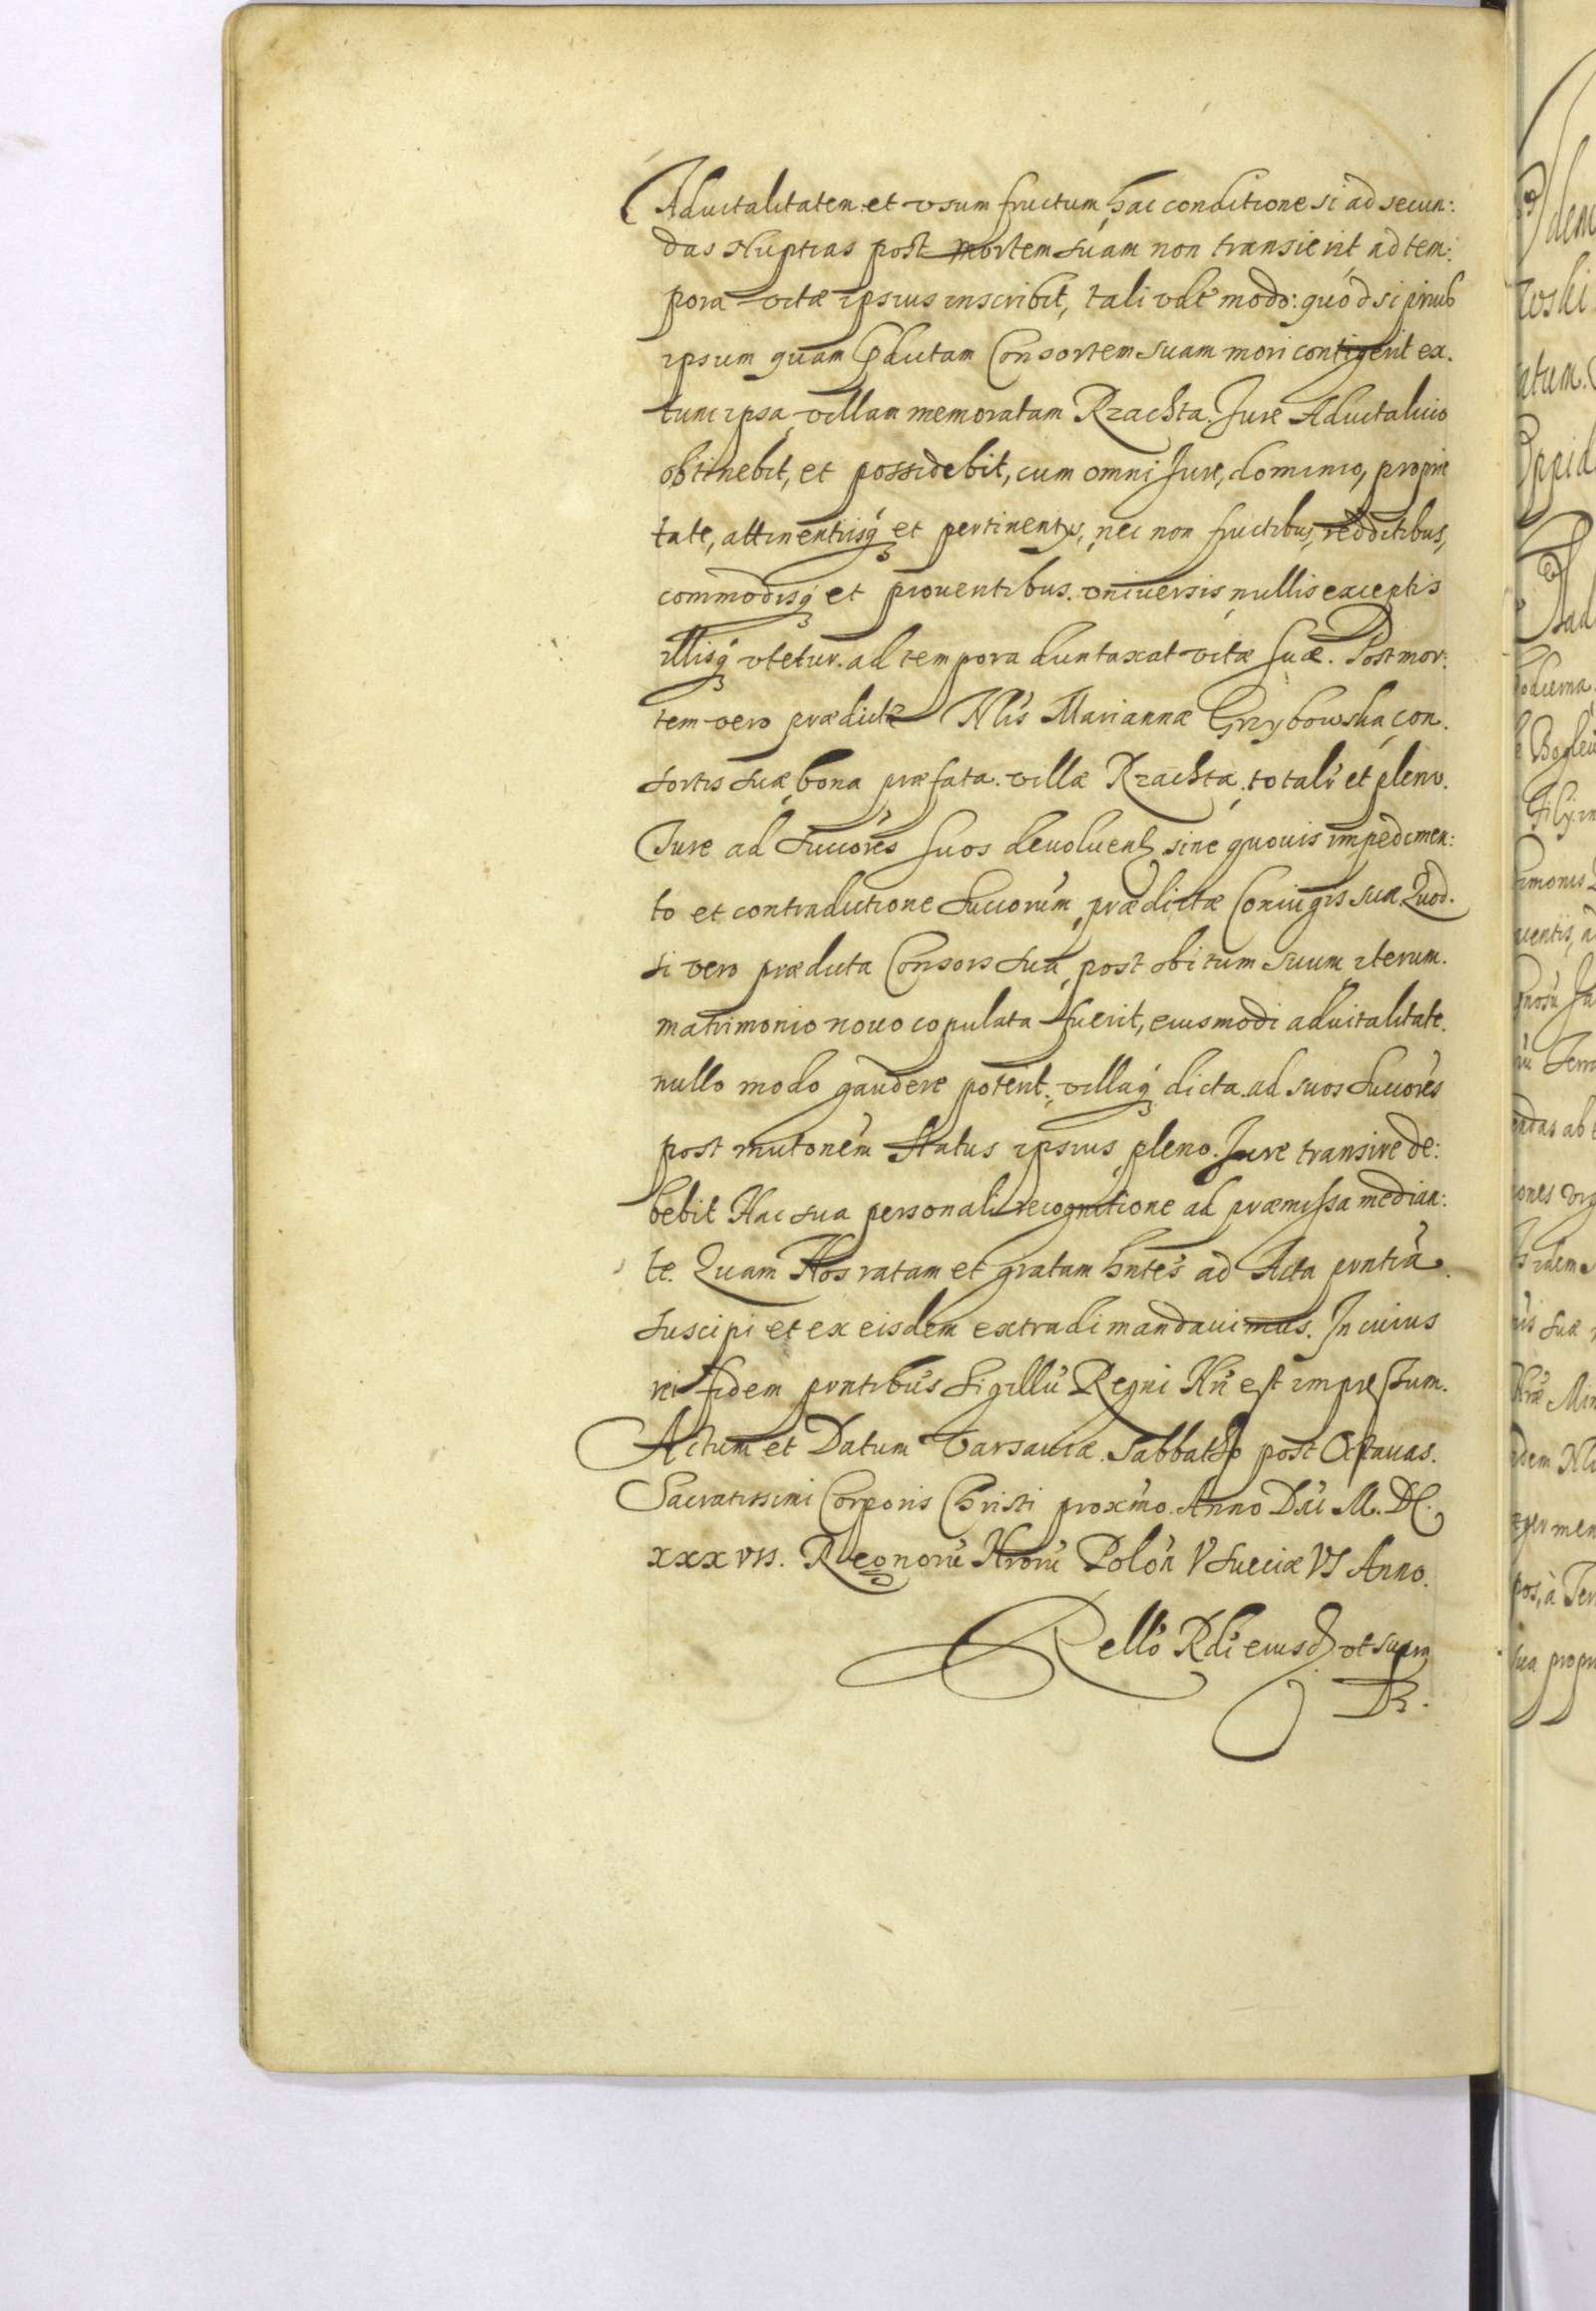 Aduitalitatem et vsum fructum, hac conditione si ad secun:
das Nuptias post mortem suam non transierit ad tem:
pora vitæ ipsius inscribit, tali vidt modo: quòd si prius
ipsum quam pdictam Consortem suam mori contigerit ex.
tunc ipsa villam memoratam Rzachta. Jure Aduitalicio
obtinebit, et possidebit, cum omni Jure, dominio, proprie
tate, attinentiisq et pertinentijs, nec non fructibus, redditibus,
commodisq et prouentibus vniuersis nullis exceptis
illisq vtetur. ad tempora duntaxat vitæ suæ. Post mor:
tem vero prædictæ Nlis Mariannæ Grzybowska, con.
sortis suæ, bona præfata villæ Rzachta, totali et pleno.
Jure ad Succores suos deuoluent, sine quouis impedimen:
to et contradictione Succorum, prædictæ Coniugis suæ. Quod.
si vero prædicta Consors sua, post obitum suum iterum.
matrimonio nouo copulata fuerit, eiusmodi aduitalitate.
nullo modo gaudere poterit, villaq dicta ad suos Succores
post mutonem Status ipsius, pleno. Jure transire de:
bebit Hac sua personali recognitione ad præmissa median:
te. Quam Nos ratam et gratam hntes ad Acta pntia
suscipi et ex eisdem extradi mandauimus. In cuius
rei fidem pntibus Sigillu Regni Nri est impressum.
Actum et Datum Varsauiæ Sabbatho post Octauas.
Sacratissimi Corporis Christi proximo. Anno Dni M. DC.
xxxvii. Regnoru Nroru Polon V Sueciæ VI Anno.
Rello Rdi eiusd vt supra